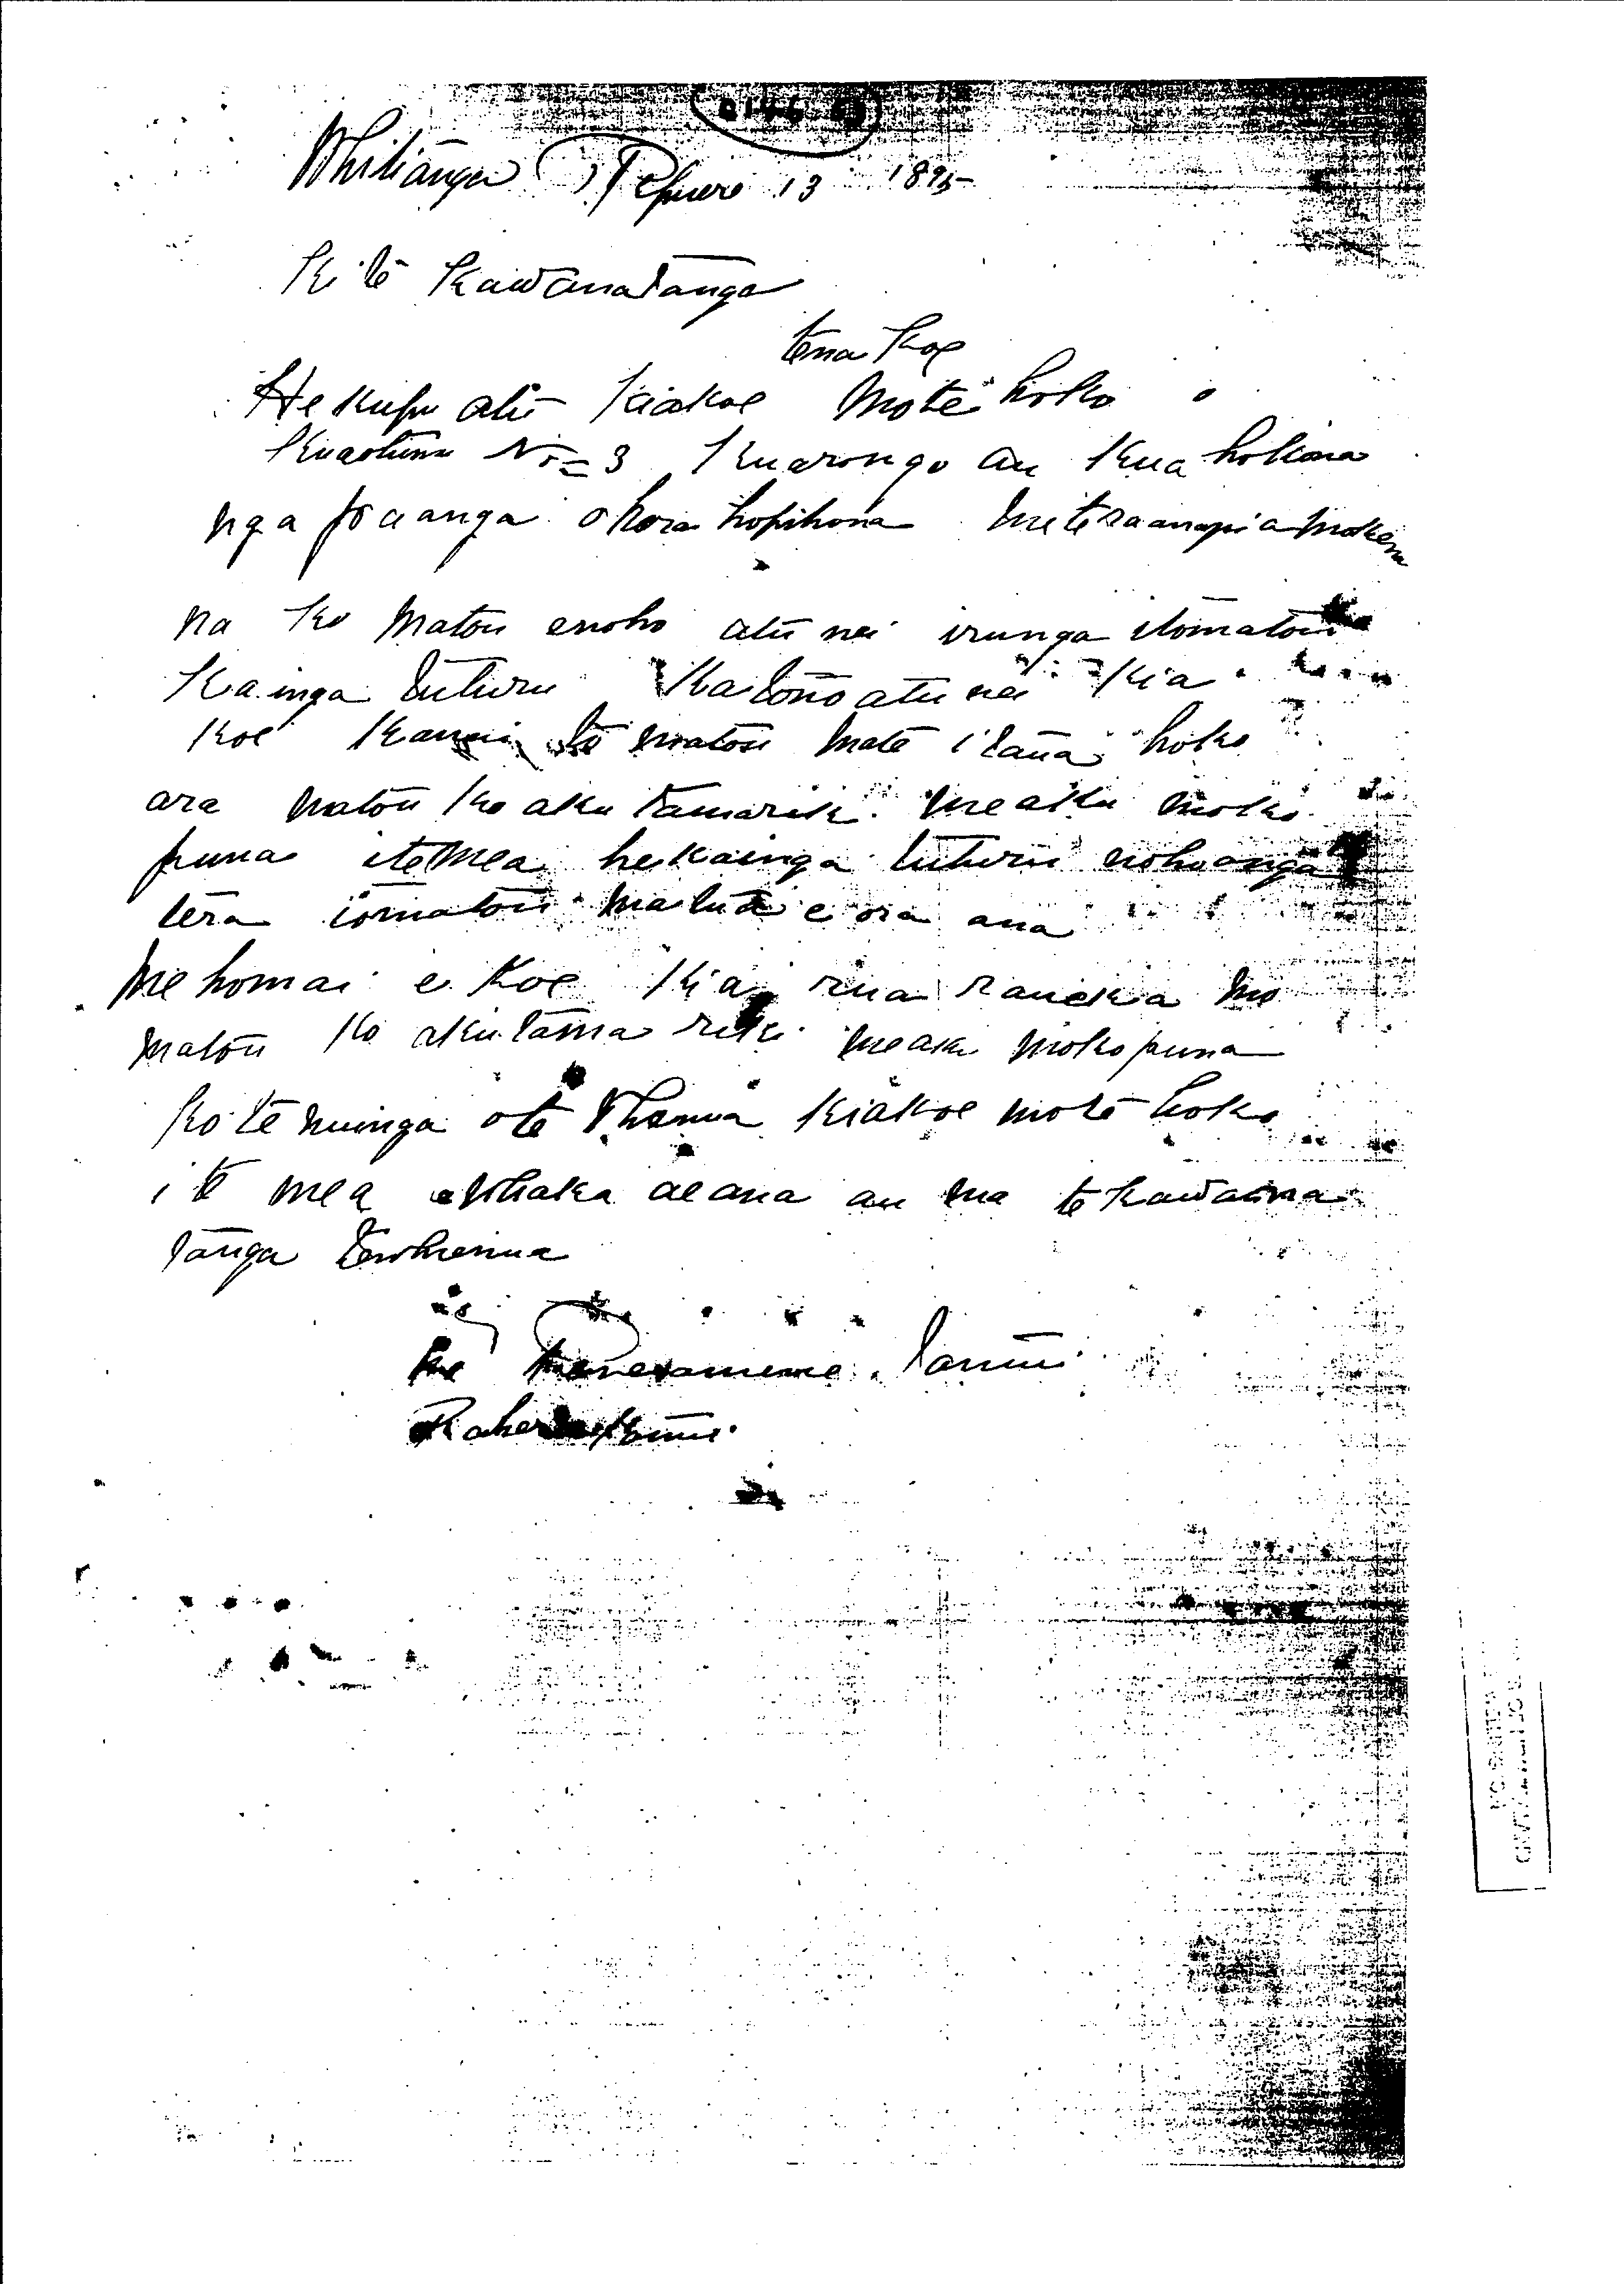 Whitianga Pepuere 13 1895
Ki te Kawanatanga
tena koe
He kupu atu kiakoe mote hoko o
Kuaotunu No 3 Kuarongo au kua hokona
nga paanga ohora hopihona me
na ko matou enoho atu nei irunga itomatou
Kainga tuturu Ka tono atu nei kia
koe matou mate i tana hoko
ara matou ko aku tamariki me aku moko
puna itemea hekainga tuturu nohoanga
tera iomatou matua e ora ana
me homai e koe kia rua raueka mo
matou ko aku tama riki meaku mokopuna
ko te nuinga ote Whenua kiakoe mote hoko
i te mea ewhaka aeana au ma te kawana
tanga tewhenua